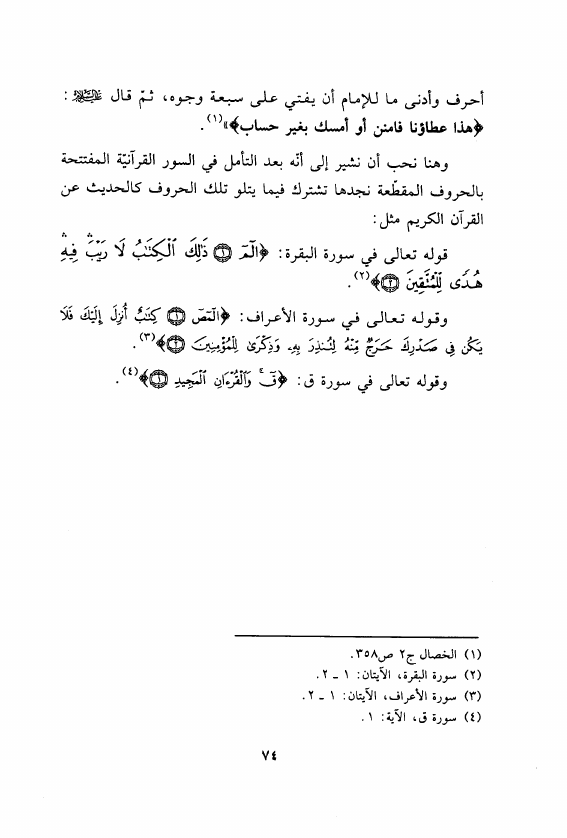 أحرف وأدنى ما للإمام أن يفتي على سبعة وجوه، ثمّ قال عليه السلام :
﴿هذا عطاؤنا فامنن أو أمسك بغير حساب﴾»(١).
وهنا نحب أن نشير إلى أنّه بعد التأمل في السور القرآنيّة المفتتحة
بالحروف المقطّعة نجدها تشترك فيما يتلو تلك الحروف كالحديث عن
القرآن الكريم مثل:
قوله تعالى في سورة البقرة: ﴿الٓمٓ ۝١ ذَٰلِكَ ٱلْكِتَٰبُ لَا رَيْبَ ۛ فِيهِ ۛ
هُدًى لِّلْمُتَّقِينَ ۝٢﴾(٢).
وقوله تعالى في سورة الأعراف: ﴿الٓمٓصٓ ۝١ كِتَٰبٌ أُنزِلَ إِلَيْكَ فَلَا
يَكُن فِى صَدْرِكَ حَرَجٌ مِّنْهُ لِتُنذِرَ بِهِۦ وَذِكْرَىٰ لِلْمُؤْمِنِينَ ۝٢﴾(٣).
وقوله تعالى في سورة ق: ﴿قٓ ۚ وَٱلْقُرْءَانِ ٱلْمَجِيدِ ۝١﴾(٤).
(١) الخصال ج٢ ص٣٥٨.
(٢) سورة البقرة، الآيتان: ١ ـ ٢.
(٣) سورة الأعراف، الآيتان: ١ ـ ٢.
(٤) سورة ق، الآية: ١.
٧٤